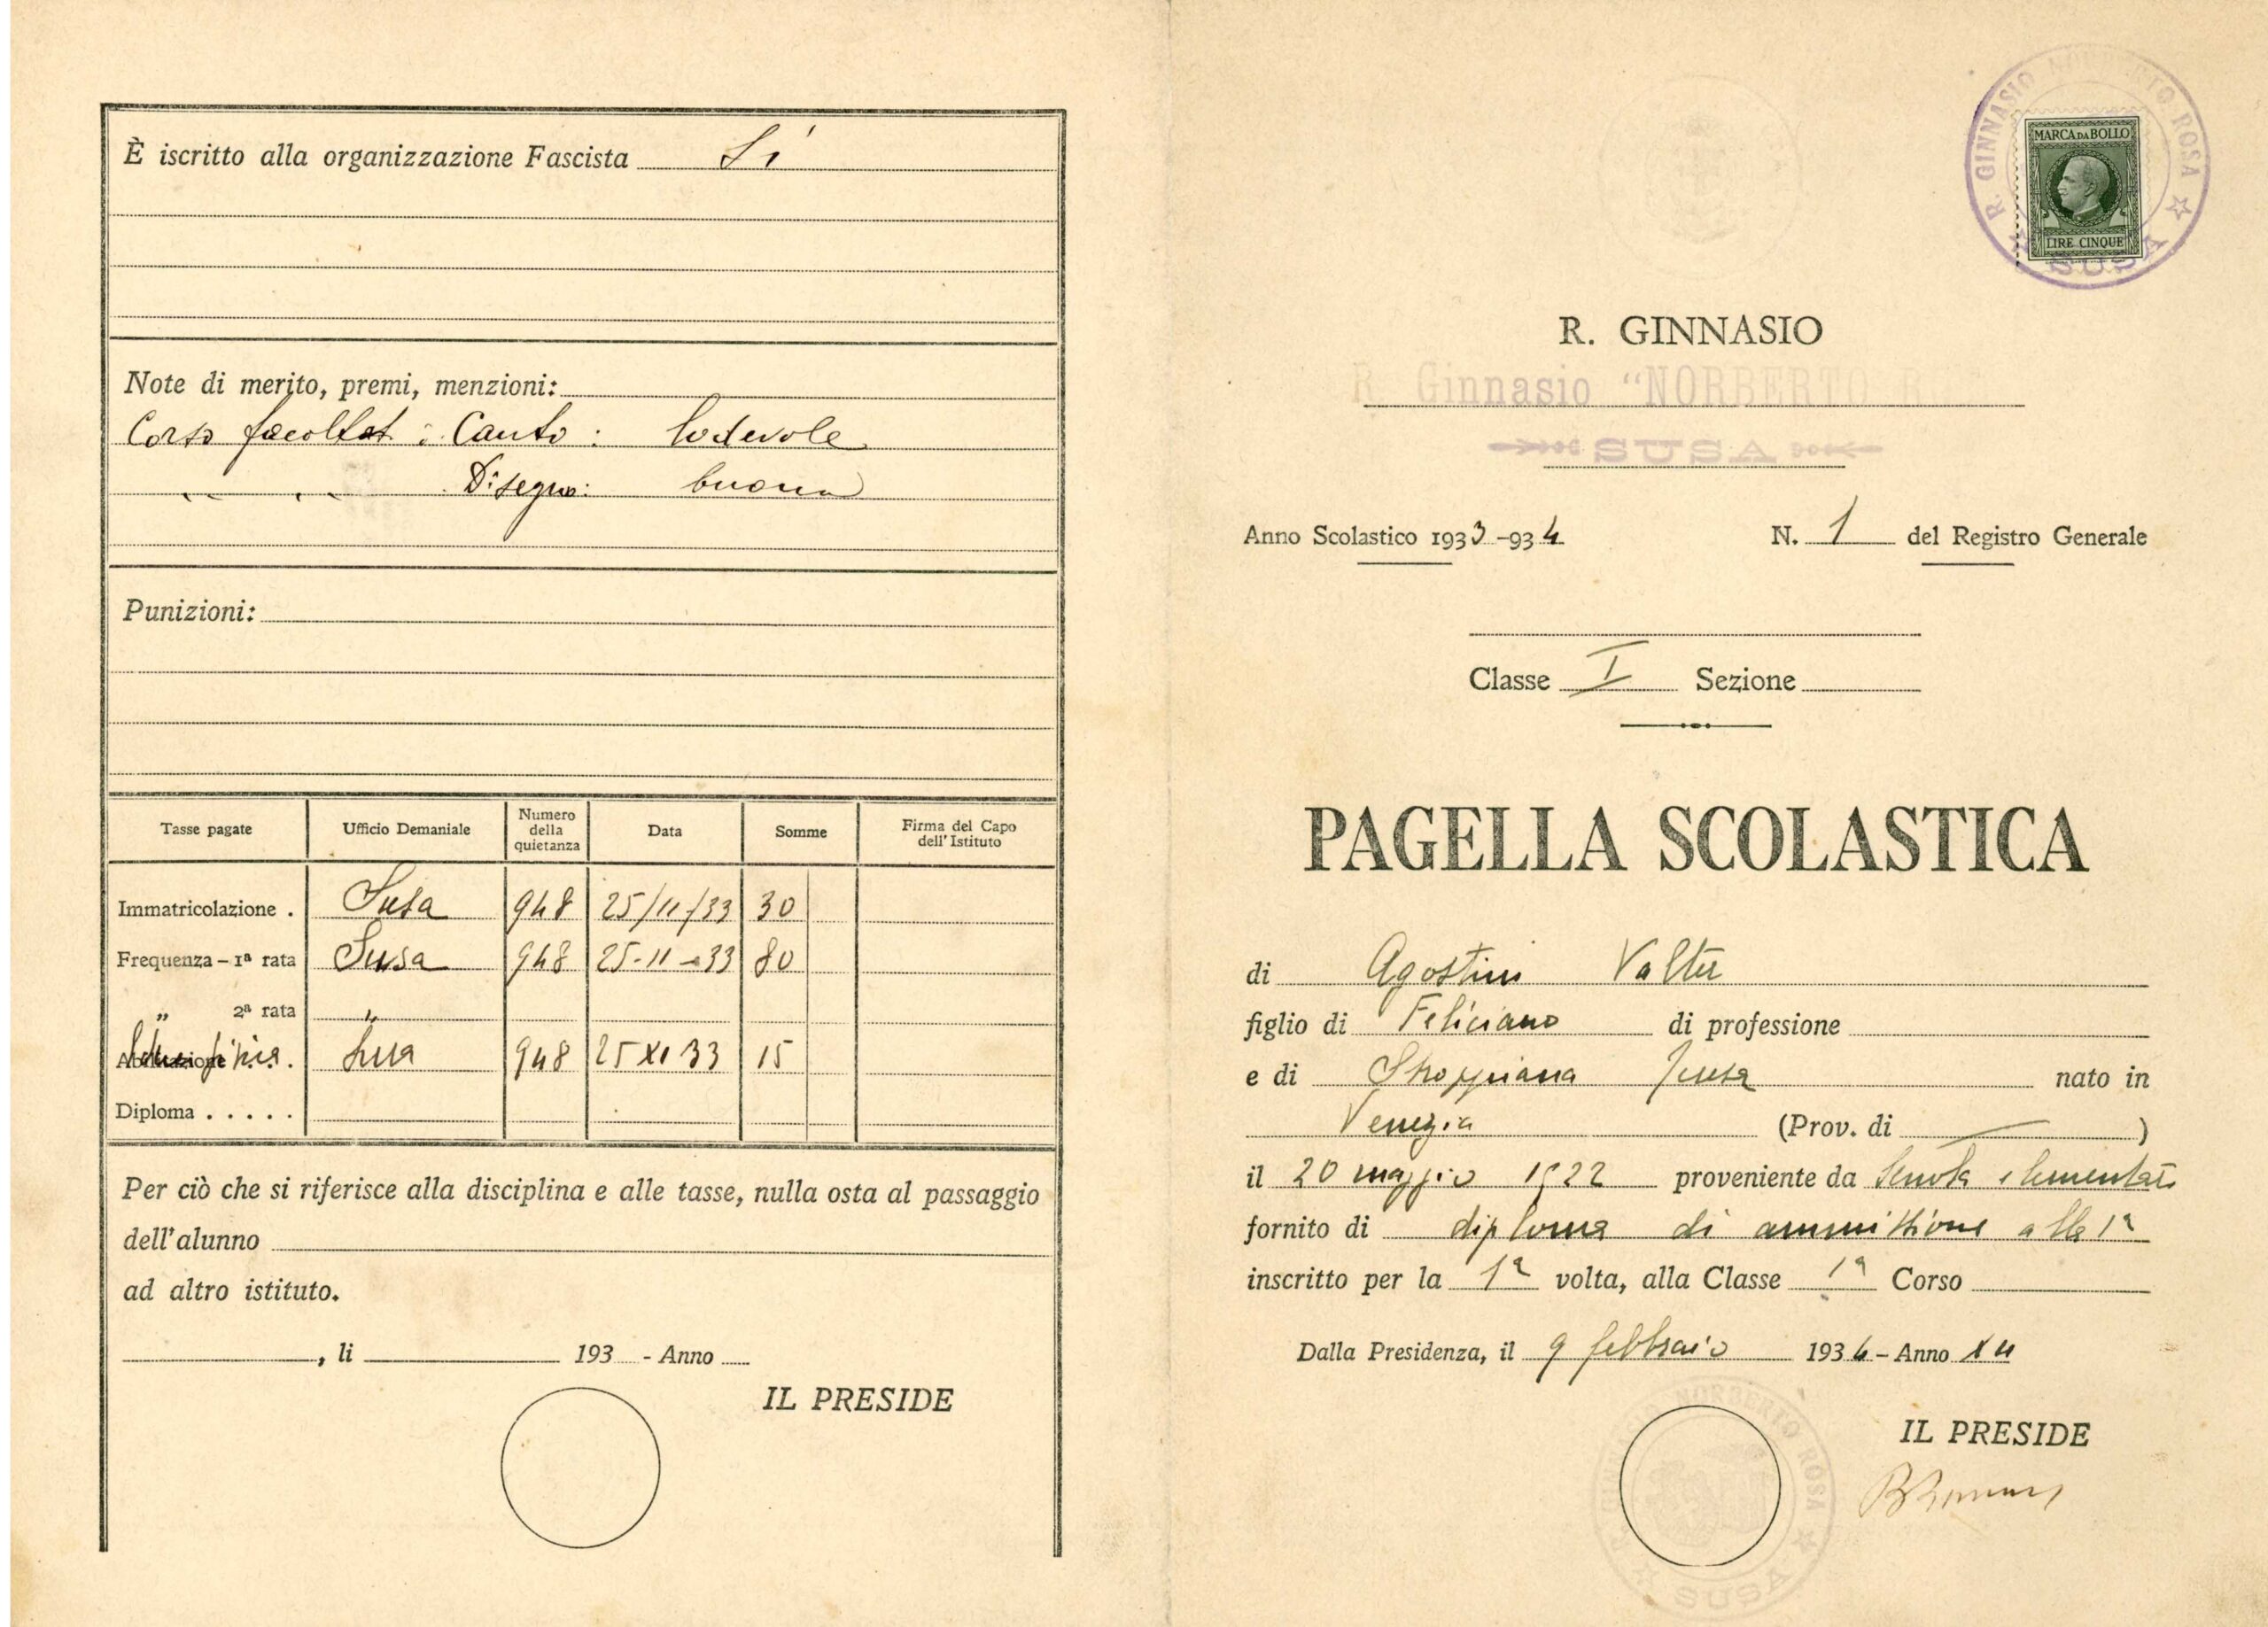 È iscritto alla organizzazione Fascista Sì
Note di merito, premi, menzioni:
Corso facoltat: Canto: lodevole
" " Disegno: buono
Punizioni:
Tasse pagate Ufficio Demaniale Numero della quietanza Data Somme Firma del Capo dell'Istituto
Immatricolazione . Susa 948 25/11/33 30
Frequenza - 1ª rata Susa 948 25-11-33 80
" 2ª rata "
Susa 948 25 XI 33 15
Diploma . . . . .
Per ciò che si riferisce alla disciplina e alle tasse, nulla osta al passaggio
dell'alunno
ad altro istituto.
, li 193 - Anno
IL PRESIDE
R. GINNASIO NORBERTO ROSA
SUSA
MARCA DA BOLLO
LIRE CINQUE
R. GINNASIO
R. Ginnasio "NORBERTO R
SUSA
Anno Scolastico 1933-934 N. 1 del Registro Generale
Classe I Sezione
PAGELLA SCOLASTICA
di Agostini Valter
figlio di Feliciano di professione
e di nato in
Venezia (Prov. di — )
il 20 maggio 1922 proveniente da Scuola elementare
fornito di diploma di ammissione alla 1ª
inscritto per la 1ª volta, alla Classe 1ª Corso
Dalla Presidenza, il 9 febbraio 1934 - Anno XII
IL PRESIDE
NORBERTO ROSA
SUSA